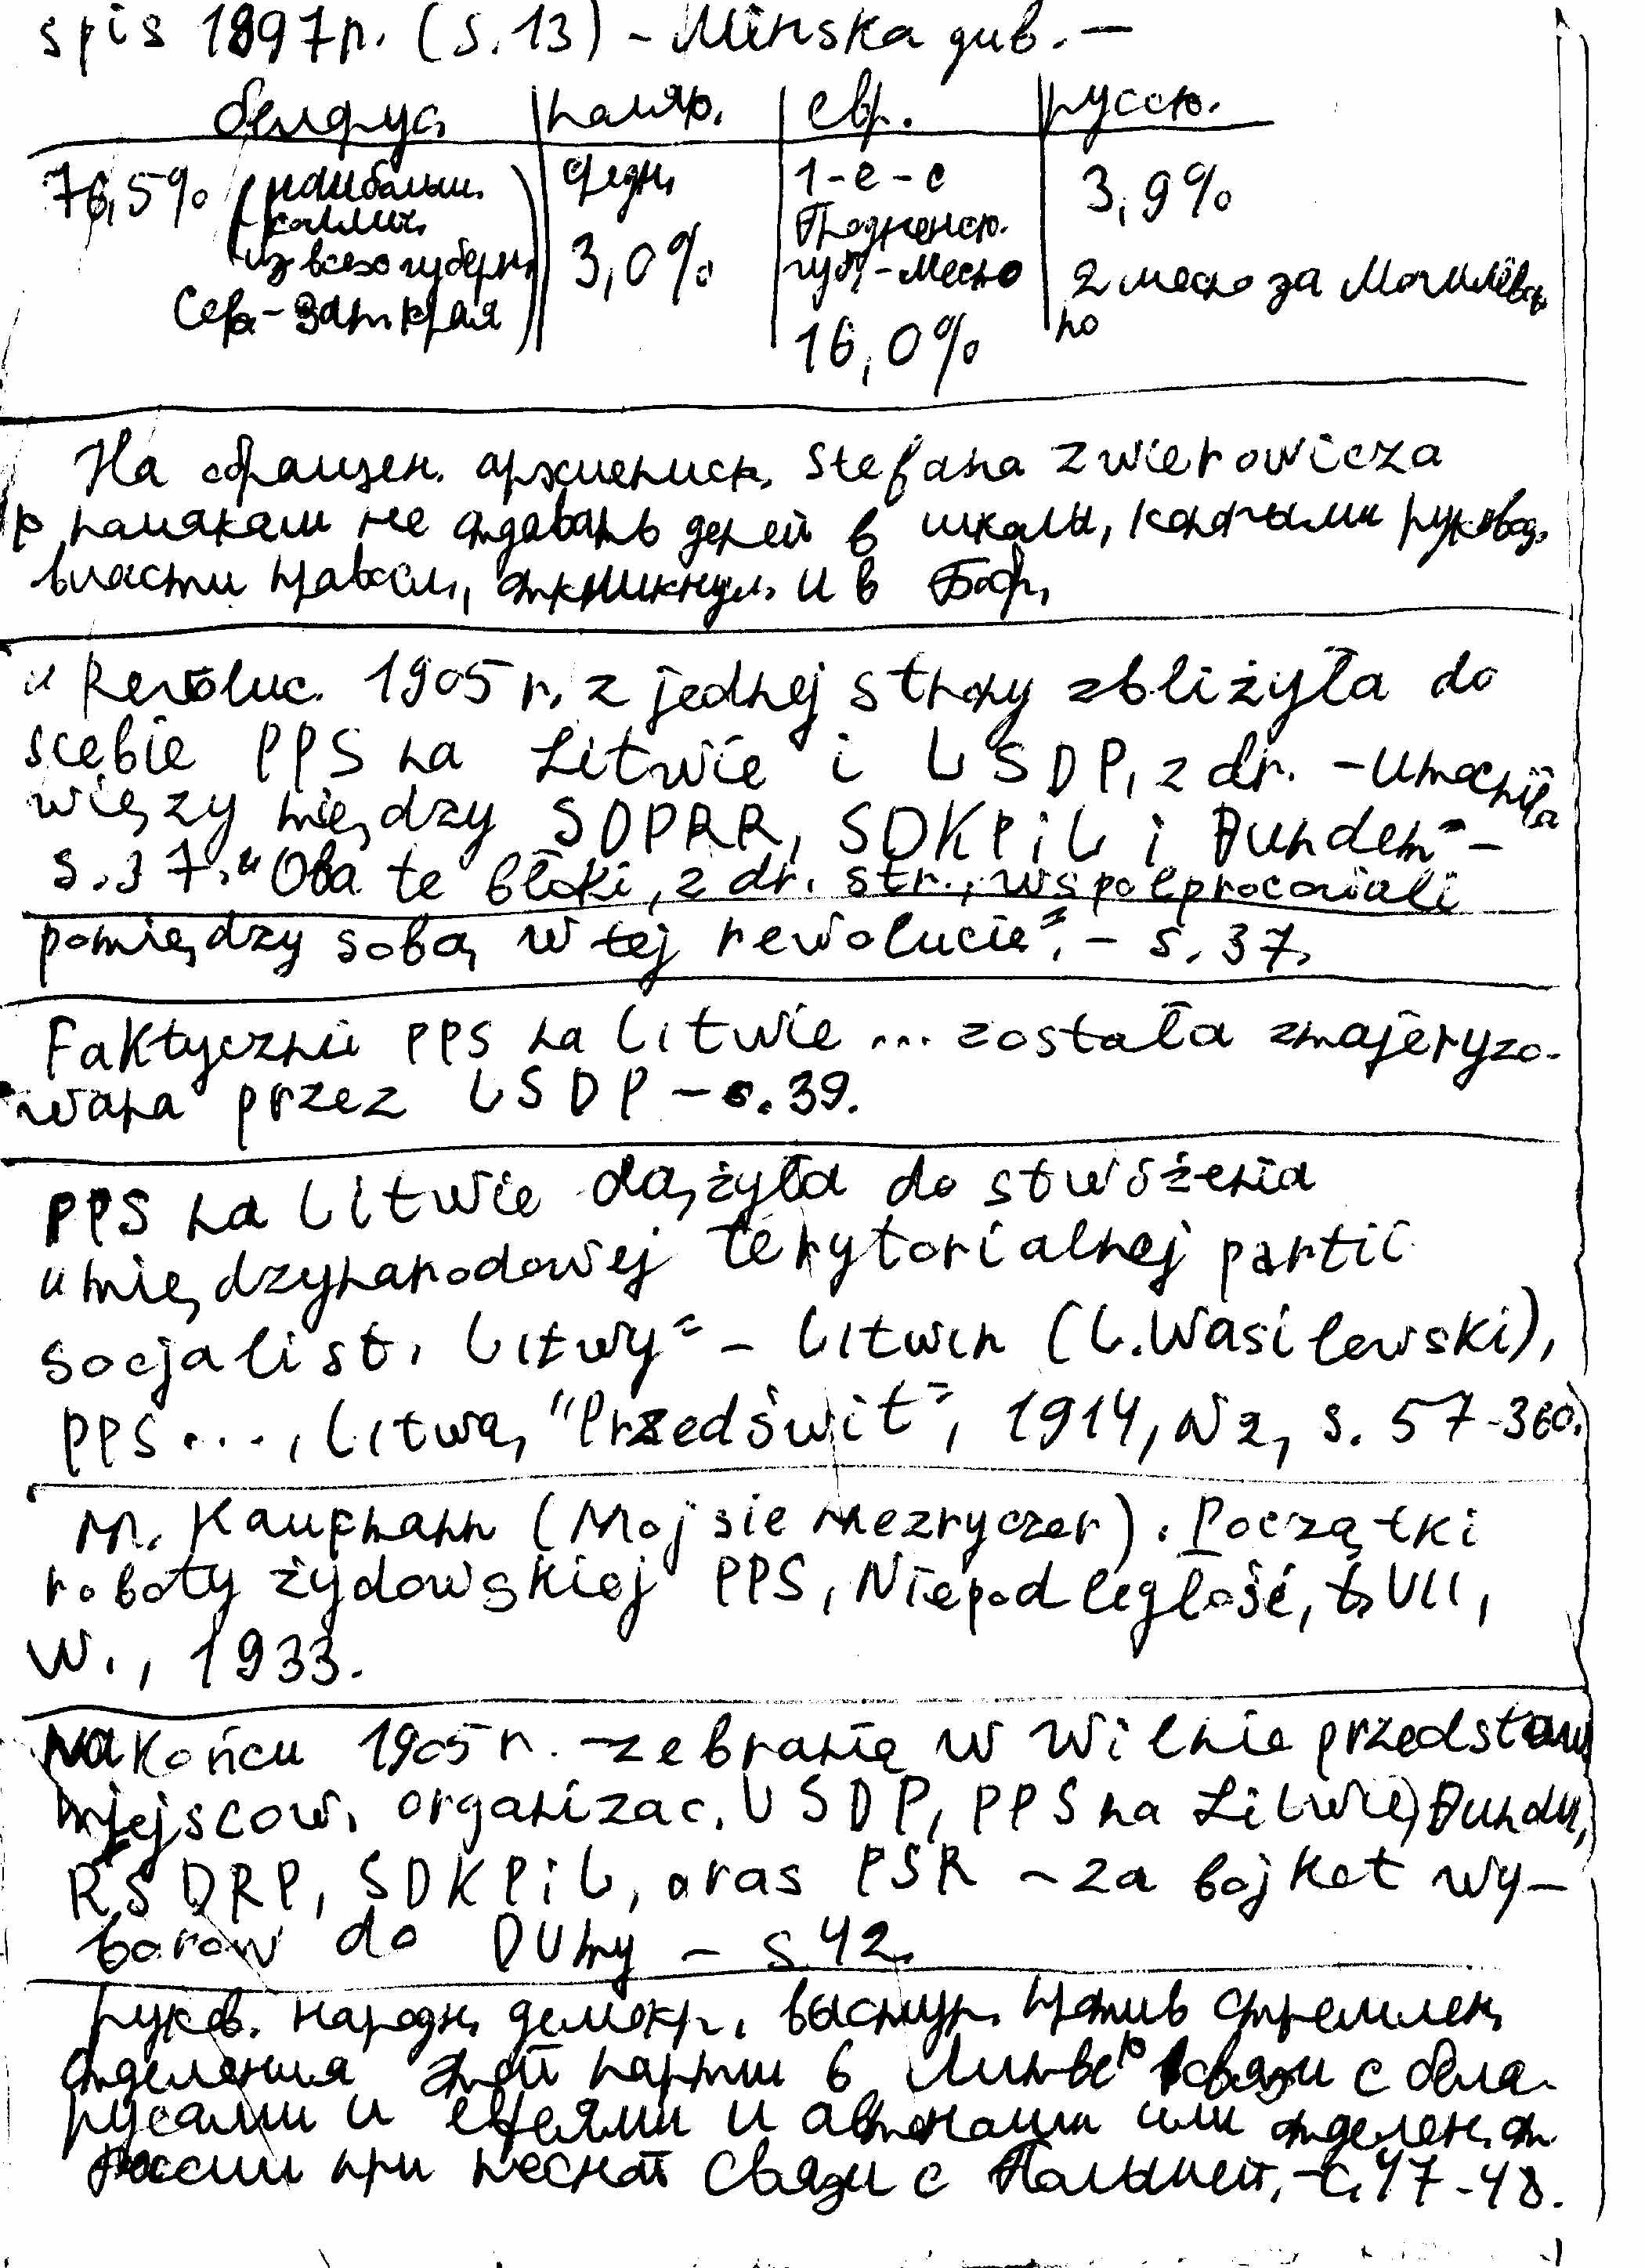 spis 1897r. (s.13) – Minska губ. –
белорус. поляк. евр. русск.
76,5% (наибольш. средн. 1-е-с 3,9%
колич. Гродненск.
из всех губерн. 3,0% губ. – место 2 место за Могилёвск
Сев-Зап. края) по
16,0%
На обращен. архиеписк. Stefana Zwierowicza
к полякам не отдавать детей в школы, которыми руковод.
власти правосл., откликнул. и в Бобр.
"Rewoluc. 1905 r. z jednej strony zbliżyła do
siebie PPS na Litwie i LSDP, z dr. – umocniła
więzy między SDPRR, SDKPiL i Bundem" –
s.37. "Oba te bloki, z dr. str., wspołpracowali
pomiędzy sobą w tej rewolucie", – s. 37.
Faktycznie PPS na Litwie ... została zmajeryzo-
wana przez LSDP – s.39.
PPS na Litwie dążyła do stwóżenia
"międzynarodowej terytorialnej partii
socjalist. Litwy" – Litwin (L.Wasilewski),
PPS ..., Litwa, "Przedświt", 1914, N2, s. 57-360.
M. Kaufmann (Mojsie Mezryczer). Początki
roboty żydowskiej PPS, Niepodległość, t. VII,
W., 1933.
Na końcu 1905 r. – zebranie w Wilnie przedstaw
miejscow. organizac. LSDP, PPS na Litwie, Bundu,
RSDRP, SDKPiL, oras PSR – za bojkot wy-
borow do Dumy – s 42.
руков. народн. демокр. выступ. против стремлен.
отделения этой партии в Литве к связи с бела-
русами и евреями и автономии или отделен. от
России при тесной связи с Польшей, – с. 47-48.